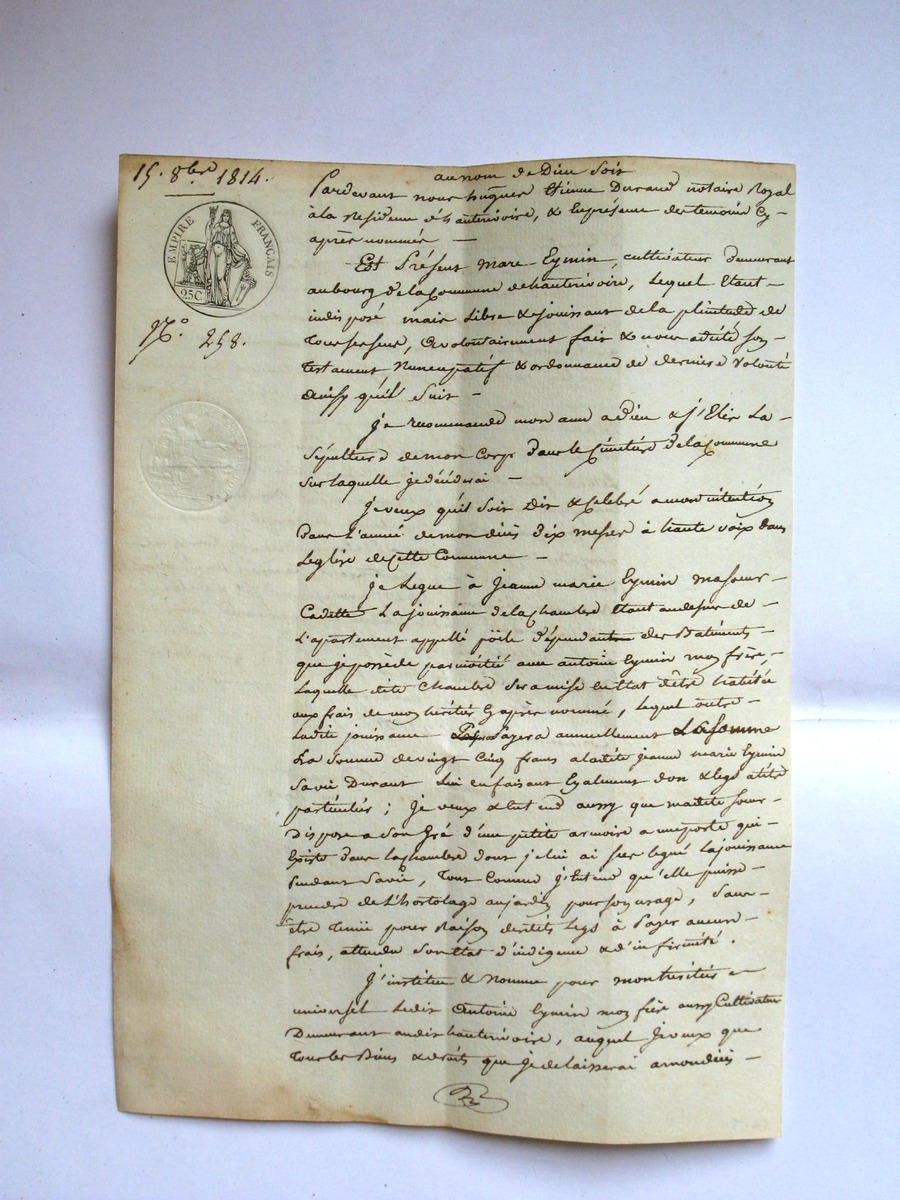 15. 8bre 1814.
EMPIRE FRANÇAIS
25C
N.° 258.
au nom de Dieu Soit
Pardevant nous hugues Etienne Durand notaire Royal
à la Residence d'hauterivoire, & En présence des temoins Cy-
après nommés —
Est Présent Marc Eymin, cultivateur demeurant
au bourg de la Commune de hauterivoire, Lequel Etant
indisposé mais Libre & jouissant de la plenitude de
tous ses sens, a volontairement fait & nous a dicté son
testament Nuncupatif & ordonnance de derniere Volonté
ainsy qu'il Suit —
Je recommande mon ame a dieu & j'Elis La
Sépulture de mon Corps dans le Cimetière de la Commune
sur laquelle je décéderai —
Je veux qu'il soit Dit & Celebré a mon intention
dans L'année de mon décès dix messes à haute voix dans
L'eglise de Cette Commune —
Je Legue à Jeanne marie Eymin ma Soeur
Cadette La jouissance de la Chambre Etant au dessus de
L'apartement appellé pöile dépendant des Batiments
que je possède par moitié avec antoine Eymin mon frère,
Laquelle dite Chambre Sera mise en Etat d'être habitée
aux frais de mon héritier Cy après nommé, Lequel outre
Ladite jouissance Payera annuellement La somme
La Somme de vingt Cinq francs a ladite jeanne marie Eymin
Sa vie Durant Lui en faisant Egalement don & legs à titre
particulier ; Je veux & Entend aussy que madite soeur
dispose a Son Gré d'une petite armoire a une porte qui
Existe dans la chambre dont je lui ai legué La jouissance
Pendant Sa vie, Tout Comme j'Entend qu'elle puisse
prendre de L'hortolage au jardin pour son usage, Sans
être Tenüe pour Raison desdits Legs à Payer aucuns
frais, attendu Son Etat d'indigence & d'infirmité.
J'institue & Nomme pour mon héritier
universel Ledit Antoine Eymin mon frère aussy Cultivateur
Demeurant audit hauterivoire, auquel Je veux que
Tous les Biens & droits que je delaisserai a mon décès